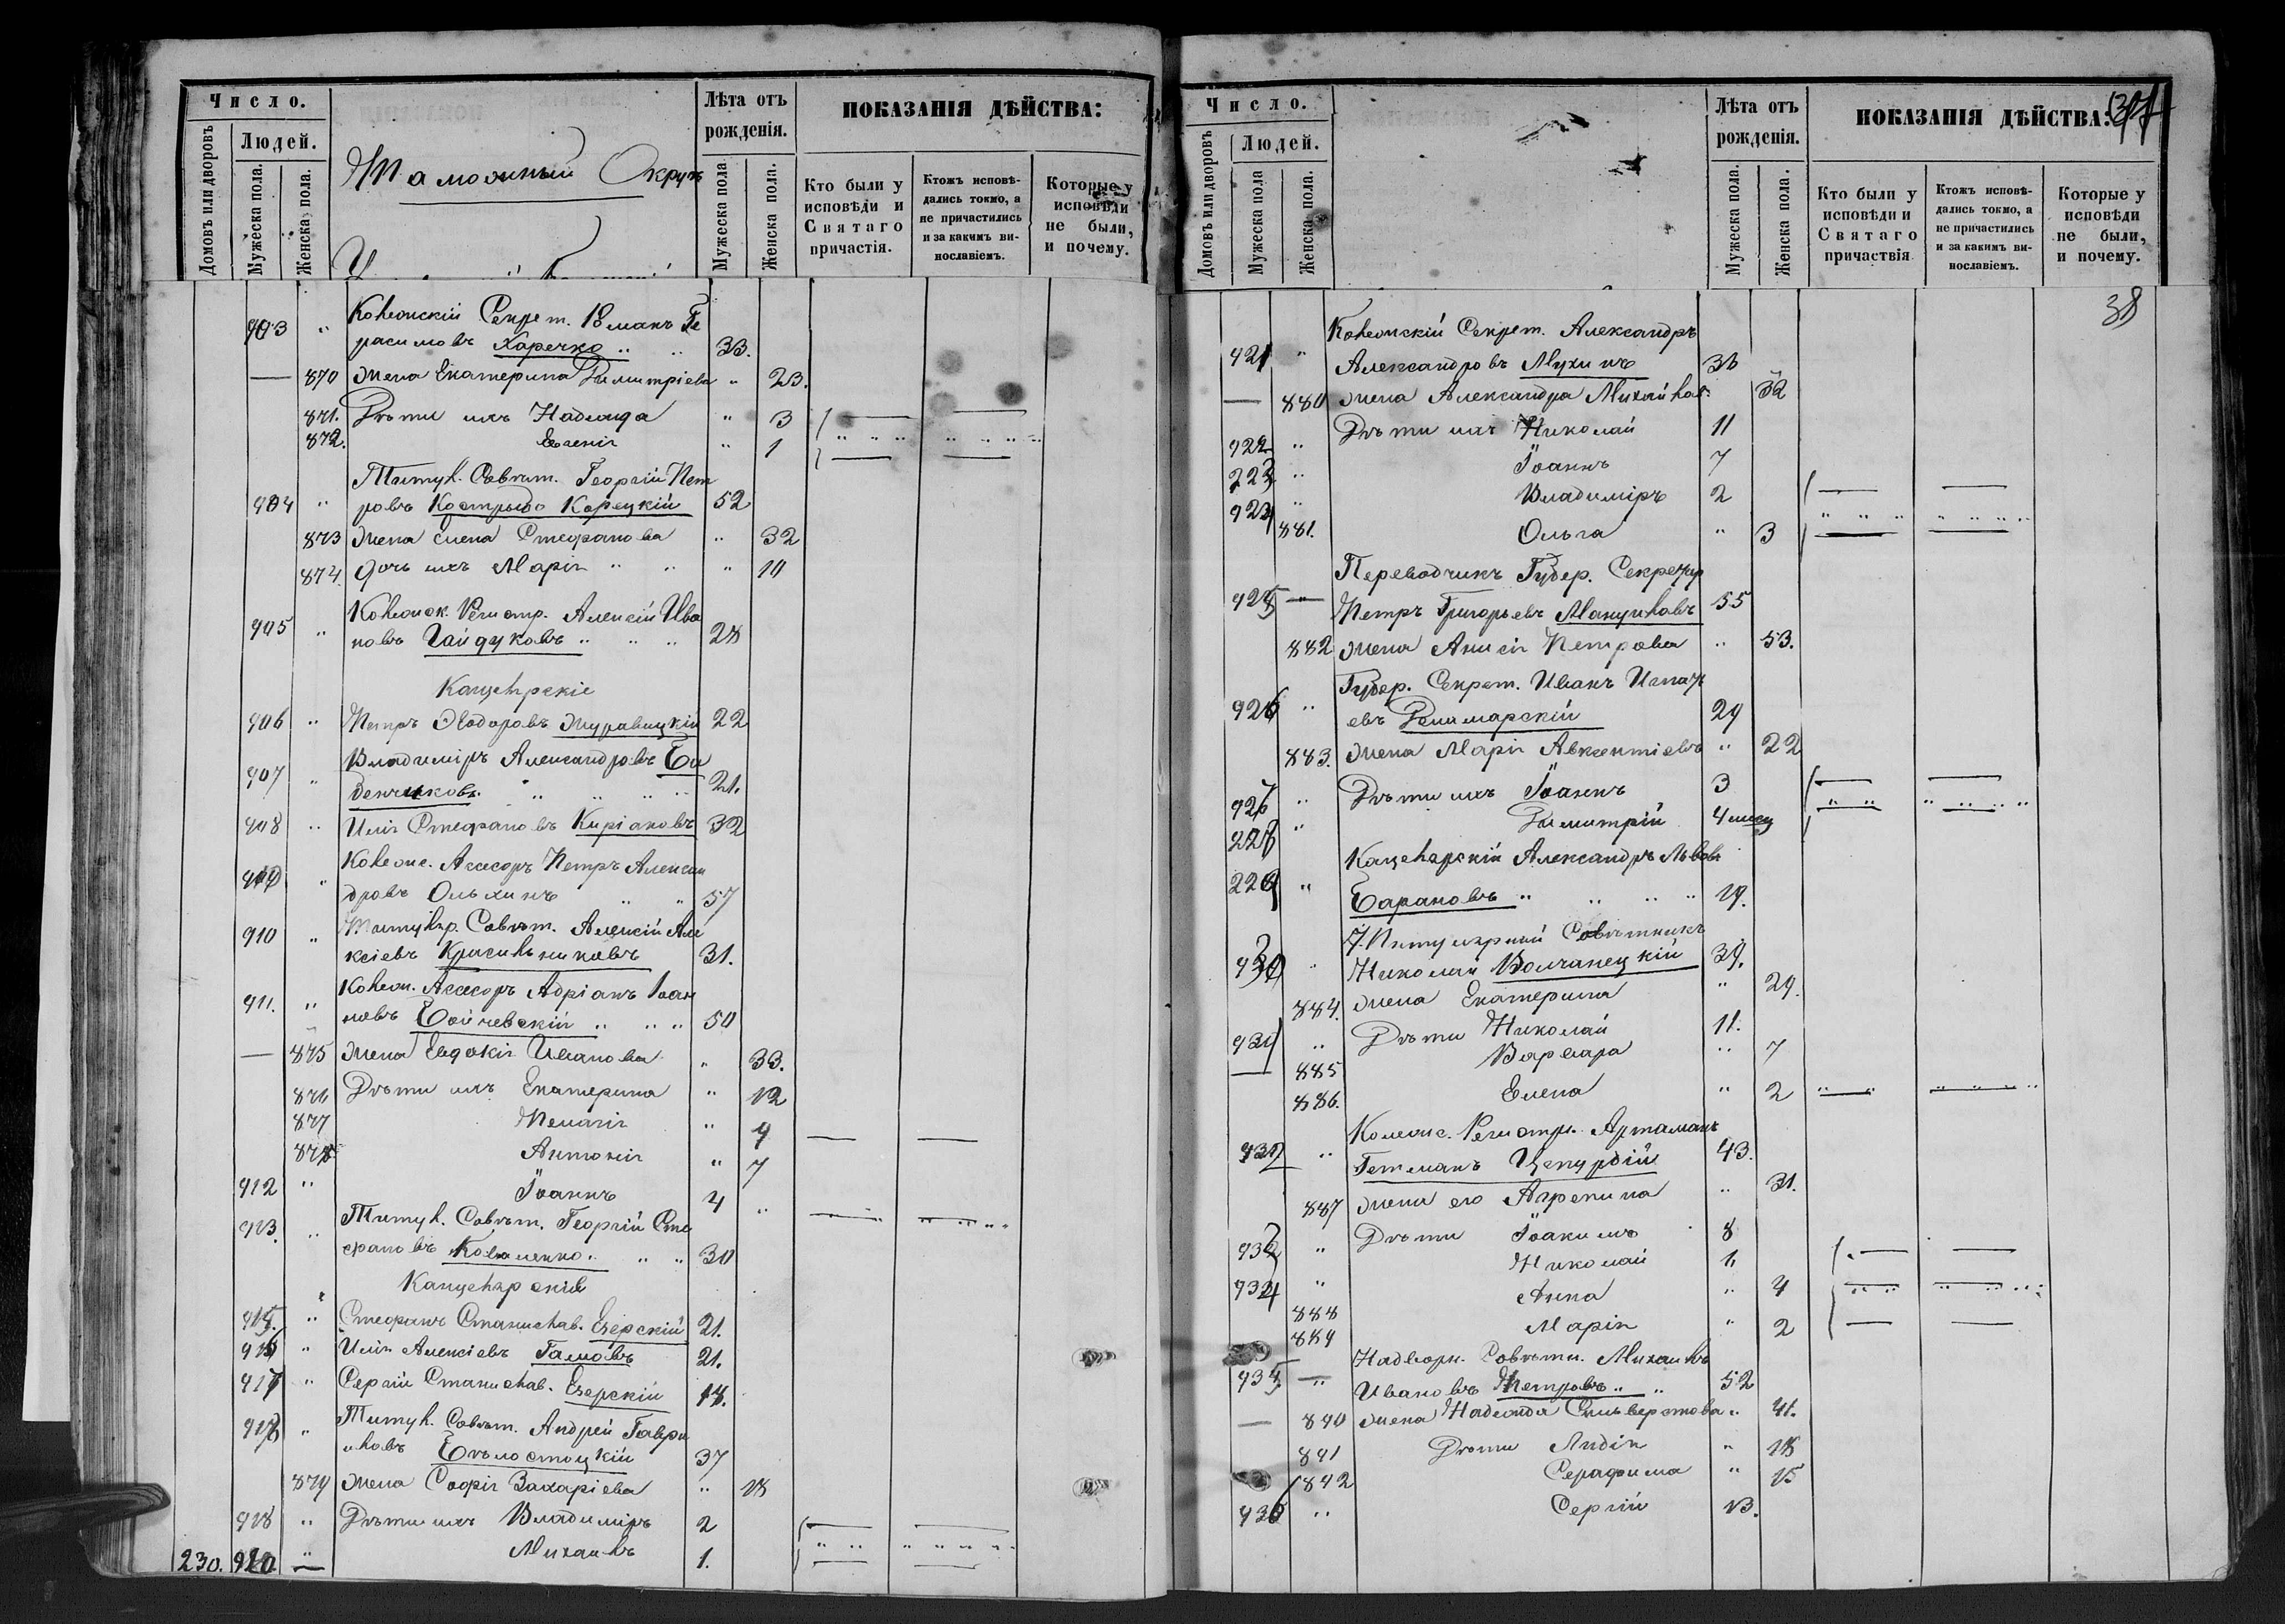 Число.
Людей.
Домовъ или дворовъ
Мужеска пола.
Женска пола.
Таможный Округъ
Лѣта отъ рожденія.
Мужеска пола
Женска пола.
ПОКАЗАНІЯ ДѢЙСТВА:
Кто были у исповѣди и Святаго причастія.
Ктожъ исповѣдались токмо, а не причастились и за какимъ винославіемъ.
Которые у исповѣди не были, и почему.
903 " Коллежскій Секрет. Романъ Ге
расимовъ Харечко " " 33.
— 870 жена Екатерина Димитріева " 23.
871. Дѣти ихъ Надежда " 3
872. Евгенія " 1
Титул. Совѣт. Георгій Пет
904 " ровъ Кострыцо Корецкій 52
873 жена Елена Стефанова " 32
874. дочь ихъ Марія " " " 10
Коллежск. Регистр. Алексій Ива
905 " новъ Гайдуковъ " " " 28
Канцелярскіе
906 " Петръ Ѳеодоровъ Журавицкій 22
Владиміръ Александровъ Ба
907 " бенчиковъ " " " 21.
908 " Илія Стефановъ Киріаковъ 32
Коллежс. Асесоръ Петръ Алексан
909 " дровъ Ольхинъ " " 57
Титуляр. Совѣт. Алексій Але
910 " ксіевъ Красильниковъ 31.
Коллеж. Асесоръ Адріанъ Іоан
911. " новъ Бойчевскій " " " 50
— 875 жена Евдокія Иванова " 33.
876 Дѣти ихъ Екатерина " 12
877 Пелагія " 9
878 Антонія " 7
912 " Іоаннъ 4 "
Титул. Совѣт. Георгій Сте
913. " фановъ Коваленко " " " 30
Канцелярскіе
915. " Стефанъ Станислав. Езерскій 21.
916 " Илія Алексіевъ Гамовъ 21.
917 " Сергій Станислав. Езерскій 18.
Титул. Совѣт. Андрей Гаври
918 " иловъ Бѣлостоцкій 37
879 жена Софія Захаріева " 18
919 " Дѣти ихъ Владиміръ 2
230. 920. " Михаилъ 1.
Число.
Людей.
Домовъ или дворовъ
Мужеска пола
Женска пола.
Лѣта отъ рожденія.
Мужеска пола.
Женска пола.
ПОКАЗАНІЯ ДѢЙСТВА:
Кто были у исповѣди и Святаго причаствія
Ктожъ исповѣдались токмо, а не причастились и за какимъ винославіемъ.
Которые у исповѣди не были, и почему.
38
Коллежскій Секрет. Александръ
921 " Александровъ Мухинъ 36
— 880 жена Александра Михайлов. 32
922 " Дѣти ихъ Николай 11
923 " Іоаннъ 7
924 " Владиміръ 2
881. Ольга " 3
Переводчикъ Губер. Секретар
925 " Петръ Григорьевъ Мануиловъ 55
882 жена Анисія Петрова " 53.
Губер. Секрет. Иванъ Игнать
926 " евъ 29
883. жена Марія Авксентіева " 22
927 " Дѣти ихъ Іоаннъ 3
928 " Димитрій 4 мѣсяц
Канцелярскій Александръ Львовъ
929 " Барановъ " " " 19.
Титулярный Совѣтникъ
930 " Николай Волчанецкій 39.
884. жена Екатерина " 29.
931 " Дѣти Николай 11.
— 885 Варвара " 7
886. Елена " 2
Коллежс. Регистр. Артамонъ
932 " Гетманъ 43.
887 жена его Агрепина " 31.
933 " Дѣти Іоакимъ 8
934 " Николай 1,
888 Анна " 4
889 Марія " 2
Надворн. Совѣтн. Михаилъ
935 " Ивановъ Петровъ " " 52
— 890 жена Надежда Сильверстова " 41.
891 Дѣти Лидія " 18
892 Серафима " 15
936 " Сергій 13.